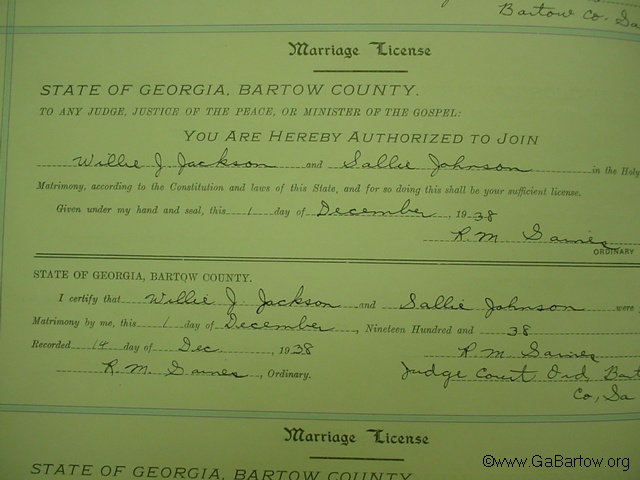 Bartow Co. Ga
Marriage License
STATE OF GEORGIA, BARTOW COUNTY.
TO ANY JUDGE, JUSTICE OF THE PEACE, OR MINISTER OF THE GOSPEL:
YOU ARE HEREBY AUTHORIZED TO JOIN
Willie J. Jackson and Sallie Johnson in the Holy
Matrimony, according to the Constitution and laws of this State, and for so doing this shall be your sufficient license.
Given under my hand and seal, this 1 day of December, 1938
R. M. Gaines
ORDINARY
STATE OF GEORGIA, BARTOW COUNTY.
I certify that Willie J. Jackson and Sallie Johnson were
Matrimony by me, this 1 day of December, Nineteen Hundred and 38
Recorded 14 day of Dec. 1938 R. M. Gaines
R. M. Gaines, Ordinary. Judge Court Ord Bart
Co, Ga
Marriage License
STATE OF GEORGIA, BARTOW COUNTY
©www.GaBartow.org